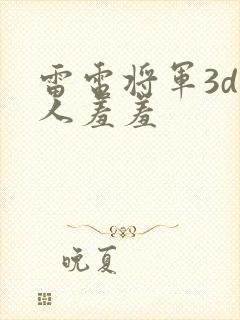 雷电将军3d
人羞羞
晚夏